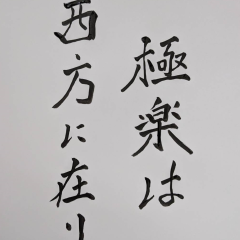 極楽は
西方に在り